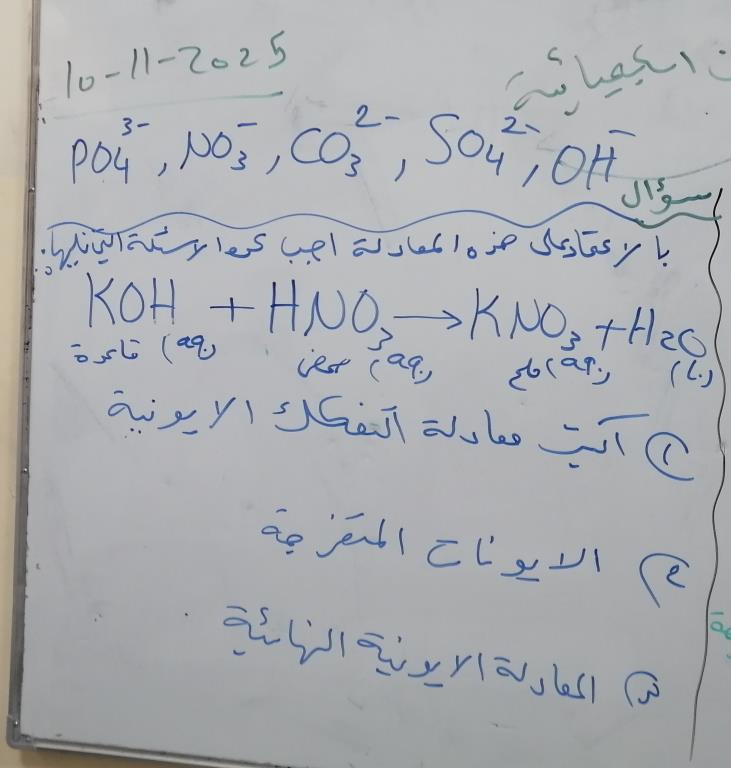 10-11-2025
الكيميائية
PO₄³⁻ , NO₃⁻ , CO₃²⁻ , SO₄²⁻ , OH⁻
سؤال
بالاعتماد على هذه المعادلة اجب عن الاسئلة التي تليها:
KOH + HNO₃ → KNO₃ + H₂O
قاعدة (aq) حمض (aq) ملح (aq) (l)
① اكتب معادلة التفكك الايونية
② الايونات المتفرجة
③ المعادلة الايونية النهائية